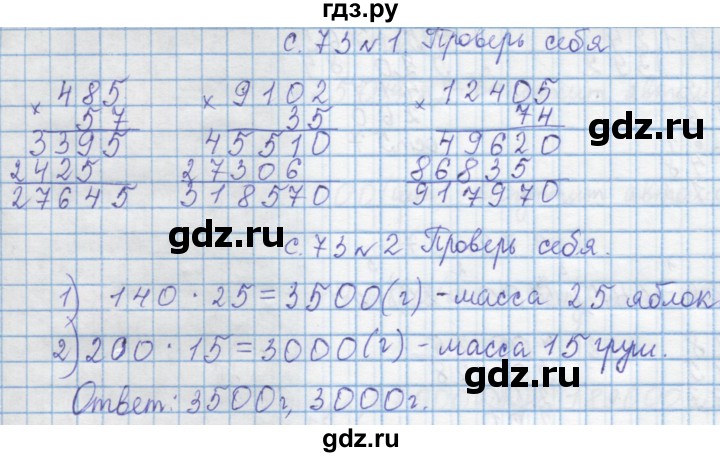 гдз.ру
с. 73 № 1 Проверь себя
× 485 × 9102 × 12405
57 35 74
3395 45510 49620
2425 27306 86835
27645 318570 917970
gdz.ru
gdz.ru
с. 73 № 2 Проверь себя.
1) 140 · 25 = 3500 (г) - масса 25 яблок
2) 200 · 15 = 3000 (г) - масса 15 груш.
gdz.ru
Ответ: 3500г, 3000г.
gdz.ru